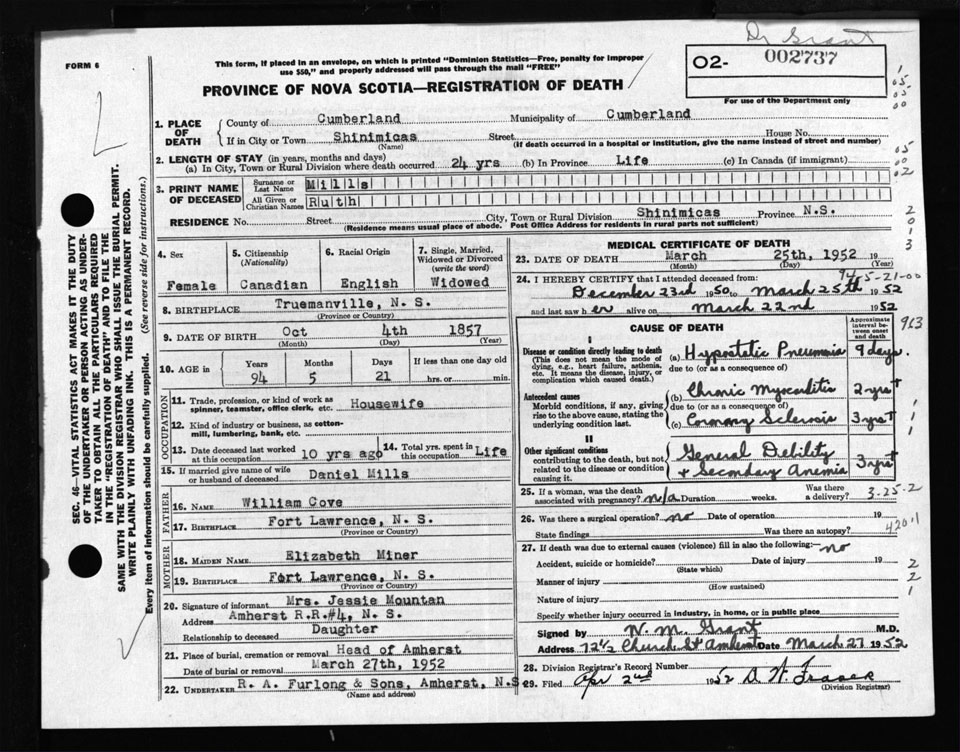 Dr Grant
FORM 6
This form, if placed in an envelope, on which is printed "Dominion Statistics—Free, penalty for improper
use $50," and properly addressed will pass through the mail "FREE"
O2- 002737
For use of the Department only
PROVINCE OF NOVA SCOTIA—REGISTRATION OF DEATH
1. PLACE OF DEATH
County of Cumberland Municipality of Cumberland
If in City or Town Shinimicas Street House No.
(Name) (If death occurred in a hospital or institution, give the name instead of street and number)
2. LENGTH OF STAY (in years, months and days)
(a) In City, Town or Rural Division where death occurred 24 yrs (b) In Province Life (c) In Canada (if immigrant)
3. PRINT NAME OF DECEASED
Surname or Last Name Mills
All Given or Christian Names Ruth
RESIDENCE No. Street City, Town or Rural Division Shinimicas Province N.S.
(Residence means usual place of abode. Post Office Address for residents in rural parts not sufficient)
4. Sex
Female
5. Citizenship
(Nationality)
Canadian
6. Racial Origin
English
7. Single, Married,
Widowed or Divorced
(write the word)
Widowed
8. BIRTHPLACE Truemanville, N. S.
(Province or Country)
9. DATE OF BIRTH Oct 4th 1857
(Month) (Day) (Year)
10. AGE in
Years Months Days If less than one day old
94 5 21 hrs. or min.
OCCUPATION
11. Trade, profession, or kind of work as
spinner, teamster, office clerk, etc. Housewife
12. Kind of industry or business, as cotton-
mill, lumbering, bank, etc.
13. Date deceased last worked
at this occupation 10 yrs ago
14. Total yrs. spent in
this occupation Life
15. If married give name of wife
or husband of deceased Daniel Mills
FATHER
16. NAME William Cove
17. BIRTHPLACE Fort Lawrence, N. S.
(Province or Country)
MOTHER
18. MAIDEN NAME Elizabeth Miner
19. BIRTHPLACE Fort Lawrence, N. S.
(Province or Country)
20. Signature of informant Mrs. Jessie Mountan
Address Amherst R.R.#4, N. S.
Relationship to deceased Daughter
21. Place of burial, cremation or removal Head of Amherst
Date of burial or removal March 27th, 1952
22. UNDERTAKER R. A. Furlong & Sons, Amherst, N.S.
(Name and address)
MEDICAL CERTIFICATE OF DEATH
23. DATE OF DEATH March 25th, 1952 19
(Month) (Day) (Year)
24. I HEREBY CERTIFY that I attended deceased from: 94 5-21-00
December 23rd 1950 to March 25th 1952
and last saw h er alive on March 22nd 1952
CAUSE OF DEATH
Approximate
interval be-
tween onset
and death
I
Disease or condition directly leading to death
(This does not mean the mode of
dying, e.g., heart failure, asthenia,
etc. It means the disease, injury, or
complication which caused death.)
(a) Hypostatic Pneumonia 9 days.
due to (or as a consequence of)
Antecedent causes
Morbid conditions, if any, giving
rise to the above cause, stating the
underlying condition last.
(b) Chronic Myocarditis 2 yrs+
due to (or as a consequence of)
(c) Coronary Sclerosis 3 yrs+
II
Other significant conditions
contributing to the death, but not
related to the disease or condition
causing it.
General Debility
+ Secondary Anemia 3 yrs+
25. If a woman, was the death
associated with pregnancy? n/a Duration weeks. Was there
a delivery? 3-25-2
26. Was there a surgical operation? no Date of operation 19
State findings Was there an autopsy?
420.1
27. If death was due to external causes (violence) fill in also the following:— no
Accident, suicide or homicide? Date of injury 19
(State which)
Manner of injury
(How sustained)
Nature of injury
Specify whether injury occurred in industry, in home, or in public place
Signed by N. M. Grant M.D.
Address 72½ Church St Amherst Date March 27 1952
28. Division Registrar's Record Number
29. Filed Apr 2nd 1952 D. W. Fraser
(Division Registrar)
SEC. 46—VITAL STATISTICS ACT MAKES IT THE DUTY
OF THE UNDERTAKER OR PERSON ACTING AS UNDER-
TAKER TO OBTAIN ALL THE PARTICULARS REQUIRED
IN THE "REGISTRATION OF DEATH" AND TO FILE THE
SAME WITH THE DIVISION REGISTRAR WHO SHALL ISSUE THE BURIAL PERMIT.
WRITE PLAINLY WITH UNFADING INK. THIS IS A PERMANENT RECORD.
Every item of information should be carefully supplied. (See reverse side for instructions.)